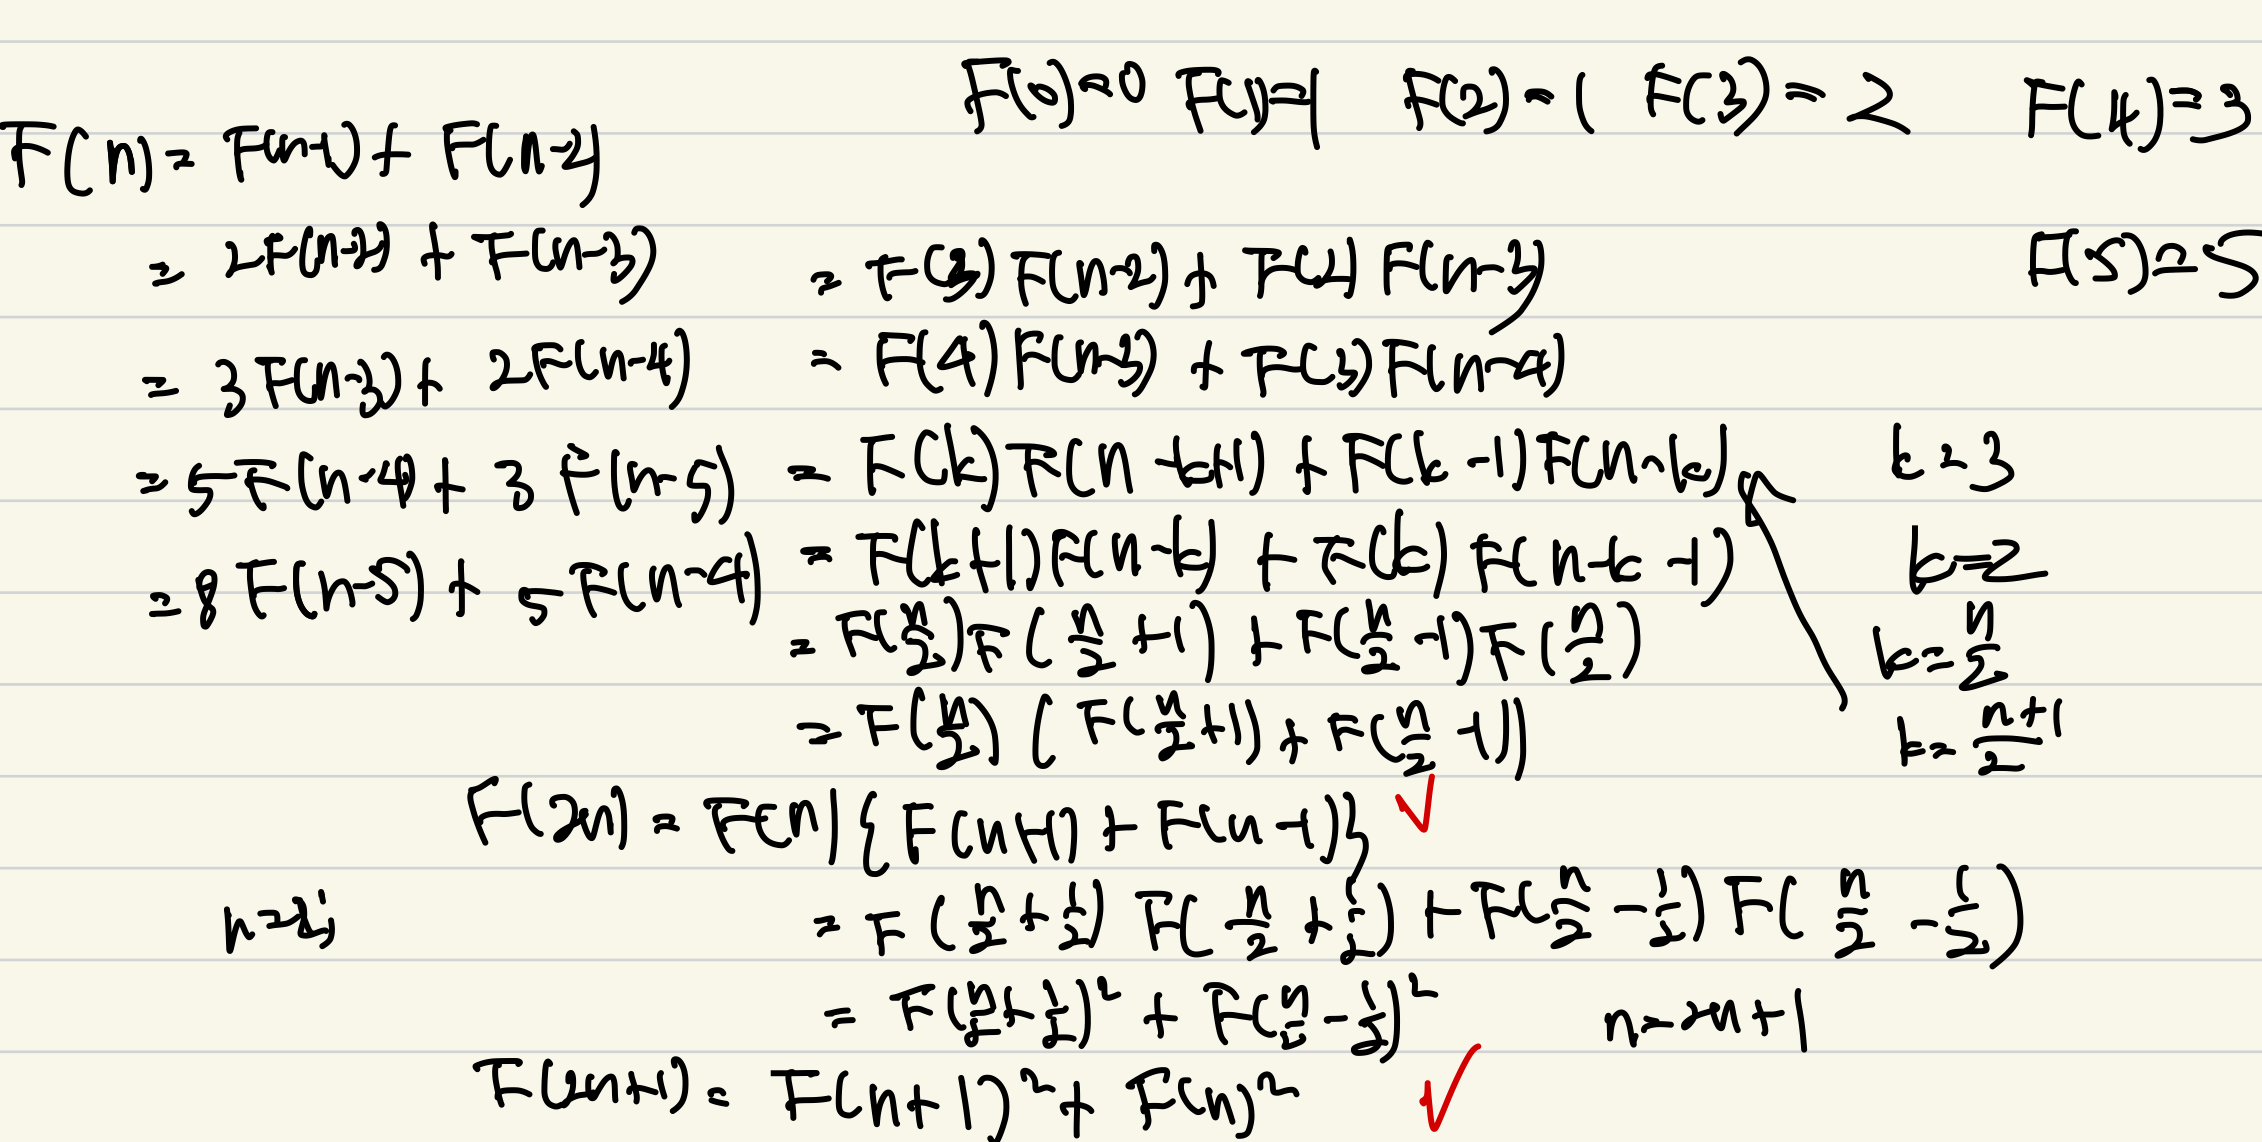 F(0)=0 F(1)=1 F(2)=1 F(3)=2 F(4)=3
F(n)= F(n-1)+F(n-2)
= 2F(n-2) + F(n-3) = F(3)F(n-2)+F(2)F(n-3) F(5)=5
= 3F(n-3)+2F(n-4) = F(4)F(n-3)+F(3)F(n-4)
= 5F(n-4)+3F(n-5) = F(k)F(n-k+1)+F(k-1)F(n-k) k=3
= 8F(n-5)+5F(n-4) = F(k+1)F(n-k)+F(k)F(n-k-1) k=2
= F(n/2)F(n/2+1)+F(n/2-1)F(n/2) k=n/2
= F(n/2)(F(n/2+1)+F(n/2-1)) k=(n+1)/2
F(2n)=F(n){F(n+1)+F(n-1)} ✓
= F(n/2+1/2)F(n/2+1/2)+F(n/2-1/2)F(n/2-1/2)
= F(n/2+1/2)²+F(n/2-1/2)² n=2n+1
F(2n+1)=F(n+1)²+F(n)² ✓